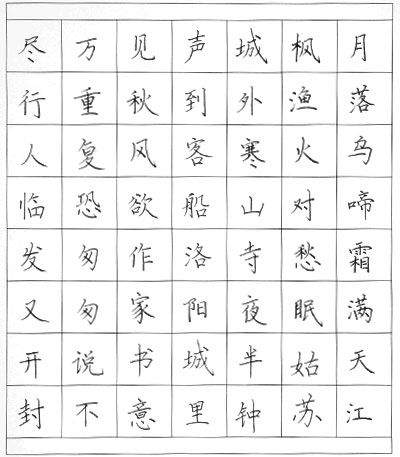 月落乌啼霜满天江
枫渔火对愁眠姑苏
城外寒山寺夜半钟
声到客船洛阳城里
见秋风欲作家书意
万重复恐匆匆说不
尽行人临发又开封